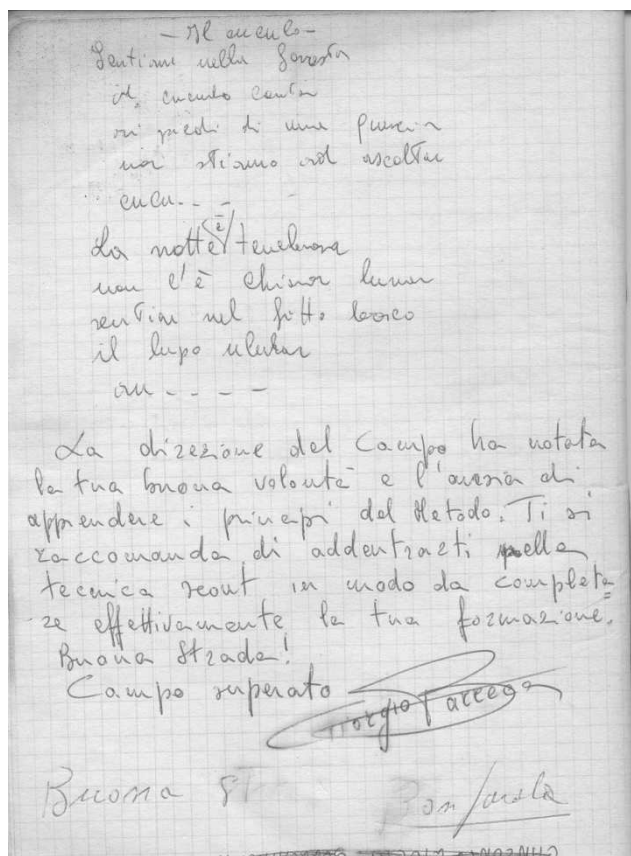 - Il cuculo -
Sentiam nella foresta
il cuculo cantar
ai piedi di una quercia
noi stiamo ad ascoltar
cucu.. - -
La notte è tenebrosa
non c'è chiaror lunar
sentiam nel fitto bosco
il lupo ulular
au - - - -
La direzione del Campo ha notato
la tua buona volontà e l'ansia di
apprendere i principi del Metodo. Ti si
raccomanda di addentrarti nella
tecnica scout in modo da completa=
re effettivamente la tua formazione.
Buona Strada!
Campo superato
Giorgio
Buona